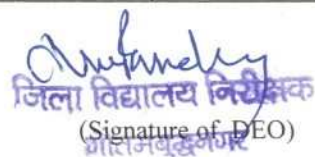 जिला विद्यालय निरीक्षक
(Signature of DEO)
गौतमबुद्धनगर